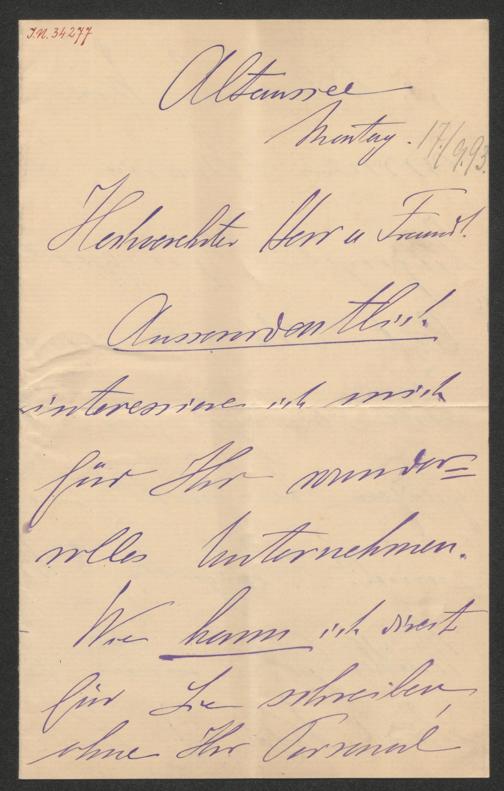 I.N. 34277
Altaussee
Montag. 17./9.93.
Hochverehrter Herr u Freund!
Ausserordentlich
interessiere ich mich
für Ihr wunder=
volles Unternehmen.
Wie kann ich direct
für Sie schreiben,
ohne Ihr Personal